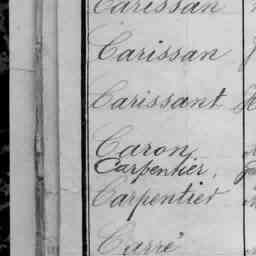 Carissan
Carissan
Carissant
Caron
Carpentier,
Carpentier
Carré